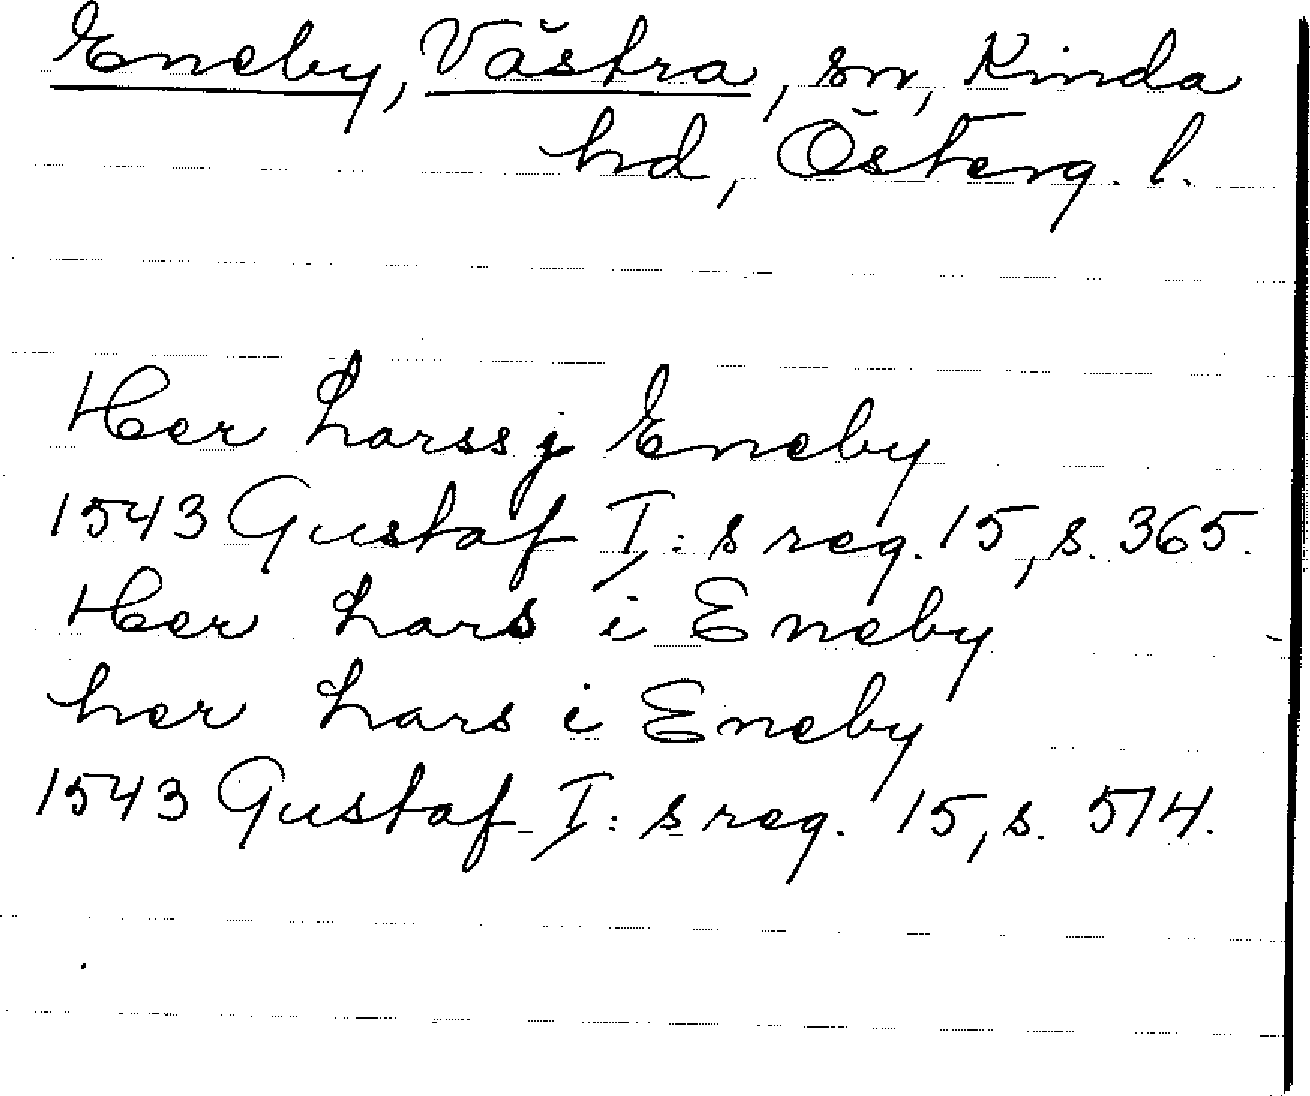 Eneby, Västra, sn, Kinda
hd, Österg. l.
Her Larss j Eneby
1543 Gustaf I:s reg. 15, s. 365.
Her Lars i Eneby
her Lars i Eneby
1543 Gustaf I:s reg. 15, s. 514.